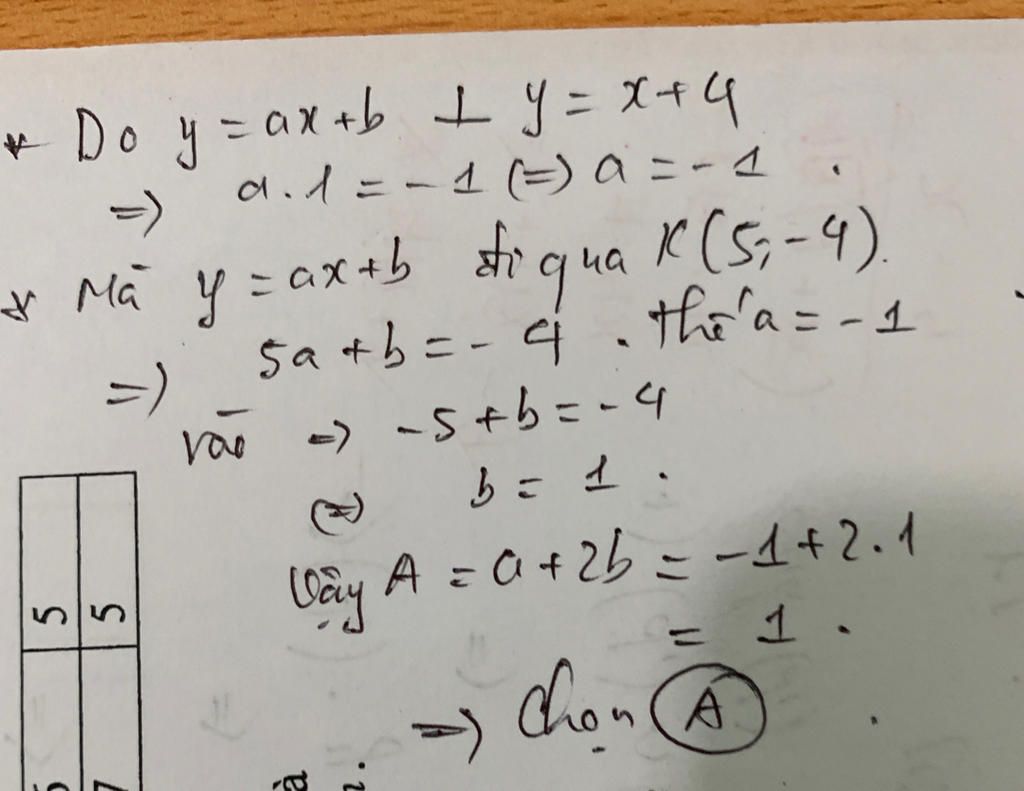 * Do y = ax + b ⊥ y = x + 4
=> a.1 = -1 (=) a = -1 .
* Mà y = ax + b đi qua K(5; -4).
=> 5a + b = -4 . thế a = -1
vào => -5 + b = -4
(=) b = 1 .
Vậy A = a + 2b = -1 + 2.1
= 1 .
=> Chọn A .
5
5
7
à